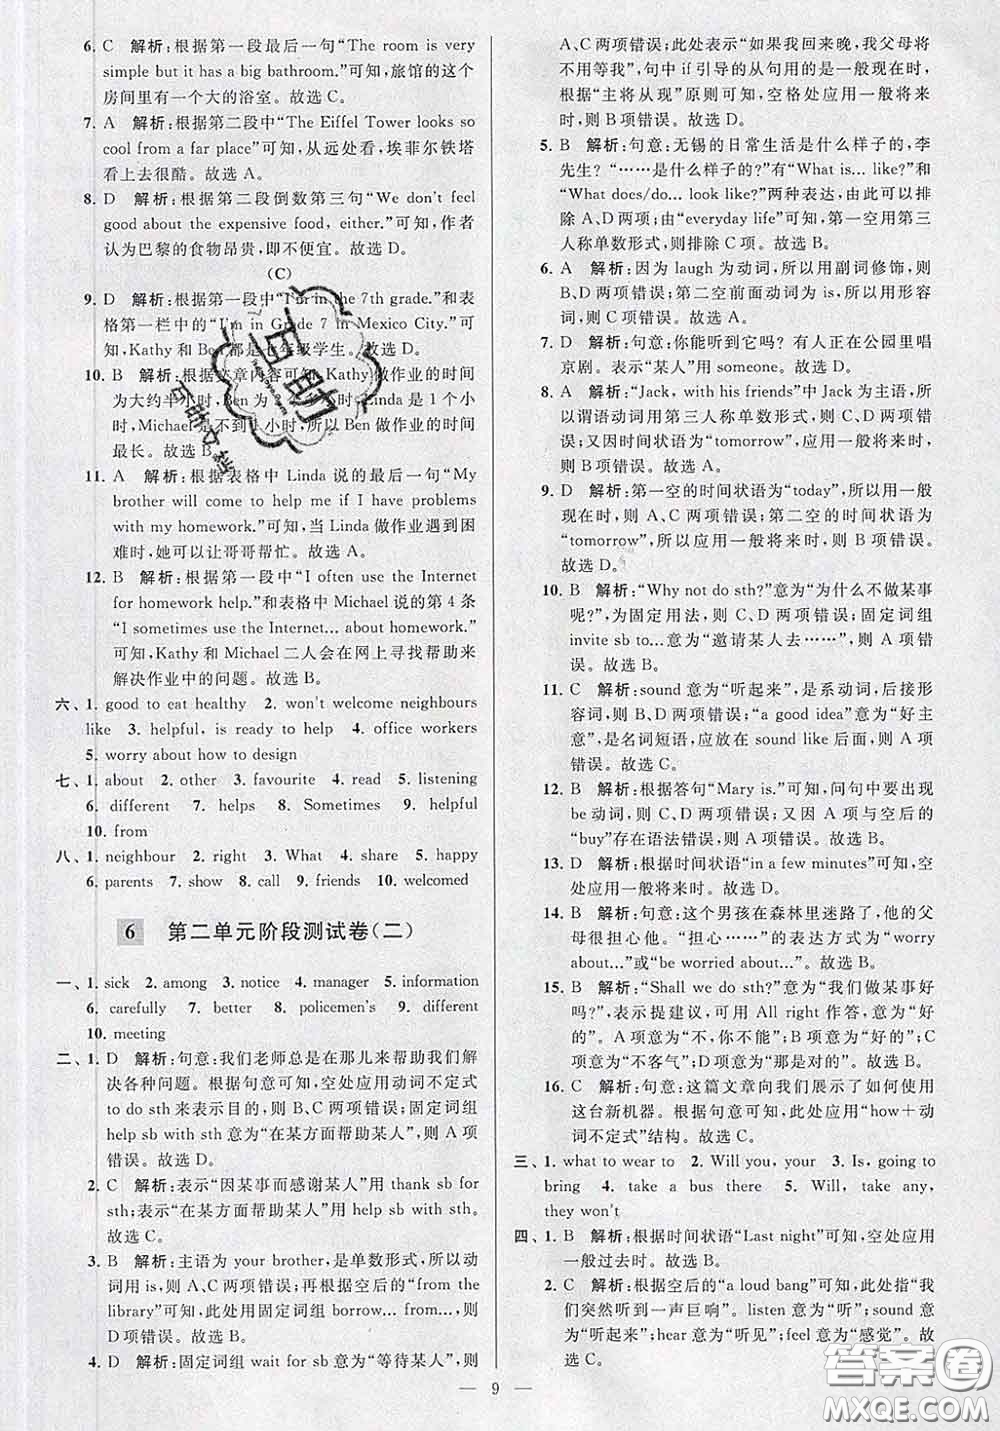 6. C 解析:根据第一段最后一句“The room is very
simple but it has a big bathroom.”可知,旅馆的这个
房间里有一个大的浴室。故选C。
7. A 解析:根据第二段中“The Eiffel Tower looks so
cool from a far place”可知,从远处看,埃菲尔铁塔
看上去很酷。故选A。
8. D 解析:根据第二段倒数第三句“We don't feel
good about the expensive food, either.”可知,作者
认为巴黎的食物昂贵,即不便宜。故选D。
(C)
9. D 解析:根据第一段中“I'm in the 7th grade.”和表
格第一栏中的“I'm in Grade 7 in Mexico City.”可
知,Kathy和Ben都是七年级学生。故选D。
10. B 解析:根据文章内容可知,Kathy做作业的时间
为大约半小时,Ben为2个小时,Linda是1个小
时,Michael是不到1小时,所以Ben做作业的时间
最长。故选B。
11. A 解析:根据表格中Linda说的最后一句“My
brother will come to help me if I have problems
with my homework.”可知,当Linda做作业遇到困
难时,她可以让哥哥帮忙。故选A。
12. B 解析:根据第一段中“I often use the Internet
for homework help.”和表格中Michael说的第4条
“I sometimes use the Internet... about homework.”
可知,Kathy和Michael二人会在网上寻找帮助来
解决作业中的问题。故选B。
六、1. good to eat healthy 2. won't welcome neighbours
like 3. helpful, is ready to help 4. office workers
5. worry about how to design
七、1. about 2. other 3. favourite 4. read 5. listening
6. different 7. helps 8. Sometimes 9. helpful
10. from
八、1. neighbour 2. right 3. What 4. share 5. happy
6. parents 7. show 8. call 9. friends 10. welcomed
6 第二单元阶段测试卷(二)
一、1. sick 2. among 3. notice 4. manager 5. information
6. carefully 7. better 8. policemen's 9. different
10. meeting
二、1. D 解析:句意:我们老师总是在那儿来帮助我们解
决各种问题。根据句意可知,空处应用动词不定式
to do sth来表示目的,则B、C两项错误;固定词组
help sb with sth意为“在某方面帮助某人”,则A项
错误。故选D。
2. C 解析:表示“因某事而感谢某人”用thank sb for
sth;表示“在某方面帮助某人”用help sb with sth。
故选C。
3. B 解析:主语为your brother,是单数形式,所以动
词用is,则A、C两项错误;再根据空后的“from the
library”可知,此处用固定词组borrow... from...,则
D项错误。故选B。
4. D 解析:固定词组wait for sb意为“等待某人”,则
A、C两项错误;此处表示“如果我回来晚,我父母将
不用等我”,句中if引导的从句用的是一般现在时,
根据“主将从现”原则可知,空格处应用一般将来
时,则B项错误。故选D。
5. B 解析:句意:无锡的日常生活是什么样子的,李
先生?“……是什么样子?”有“What is... like?”和
“What does/do... look like?”两种表达,由此可以排
除A、D两项;由“everyday life”可知,第一空用第三
人称单数形式,则排除C项。故选B。
6. A 解析:因为laugh为动词,所以用副词修饰,则
B、D两项错误;第二空前面动词为is,所以用形容
词,则C项错误。故选A。
7. D 解析:句意:你能听到它吗?有人正在公园里唱
京剧。表示“某人”用someone。故选D。
8. A 解析:“Jack, with his friends”中Jack为主语,所
以谓语动词用第三人称单数形式,则C、D两项错
误;又因时间状语为“tomorrow”,应用一般将来时,
则B项错误。故选A。
9. D 解析:第一空的时间状语为“today”,所以用一
般现在时,则A、C两项错误;第二空的时间状语为
“tomorrow”,所以应用一般将来时,则B项错误。
故选D。
10. B 解析:“Why not do sth?”意为“为什么不做某事
呢?”,为固定用法,则C、D两项错误;固定词组
invite sb to...意为“邀请某人去……”,则A项错
误。故选B。
11. C 解析:sound意为“听起来”,是系动词,后接形
容词,则B、D两项错误;“a good idea”意为“好主
意”,是名词短语,应放在sound like后面,则A项
错误。故选C。
12. B 解析:根据答句“Mary is.”可知,问句中要出现
be动词,则C、D两项错误;又因A项与空后的
“buy”存在语法错误,则A项错误。故选B。
13. D 解析:根据时间状语“in a few minutes”可知,空
处应用一般将来时。故选D。
14. B 解析:句意:这个男孩在森林里迷路了,他的父
母很担心他。“担心……”的表达方式为“worry
about...”或“be worried about...”。故选B。
15. B 解析:“Shall we do sth?”意为“我们做某事好
吗?”,表示提建议,可用All right作答,意为“好
的”。A项意为“不,你不能”;B项意为“好的”;C
项意为“不客气”;D项意为“那是对的”。故选B。
16. C 解析:句意:这篇文章向我们展示了如何使用
这台新机器。根据句意可知,此处应用“how+动
词不定式”结构。故选C。
三、1. what to wear to 2. Will you, your 3. Is, going to
bring 4. take a bus there 5. Will, take any,
they won't
四、1. B 解析:根据时间状语“Last night”可知,空处应用
一般过去时。故选B。
2. C 解析:根据空后的“a loud bang”可知,此处指“我
们突然听到一声巨响”。listen意为“听”;sound意
为“听起来”;hear意为“听见”;feel意为“感觉”。故
选C。
— 9 —
互助
互助文档
答案圈
MXQE.COM